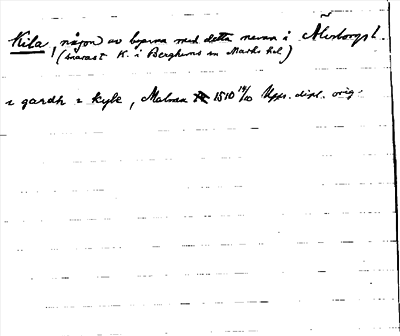 Kila, någon av byarna med detta namn i Älvsborgs l.
(snarast K. i Berghems sn Marks hd.)
i gardh i kyle, Malma 1510 14/10 Upps. dipl. orig.